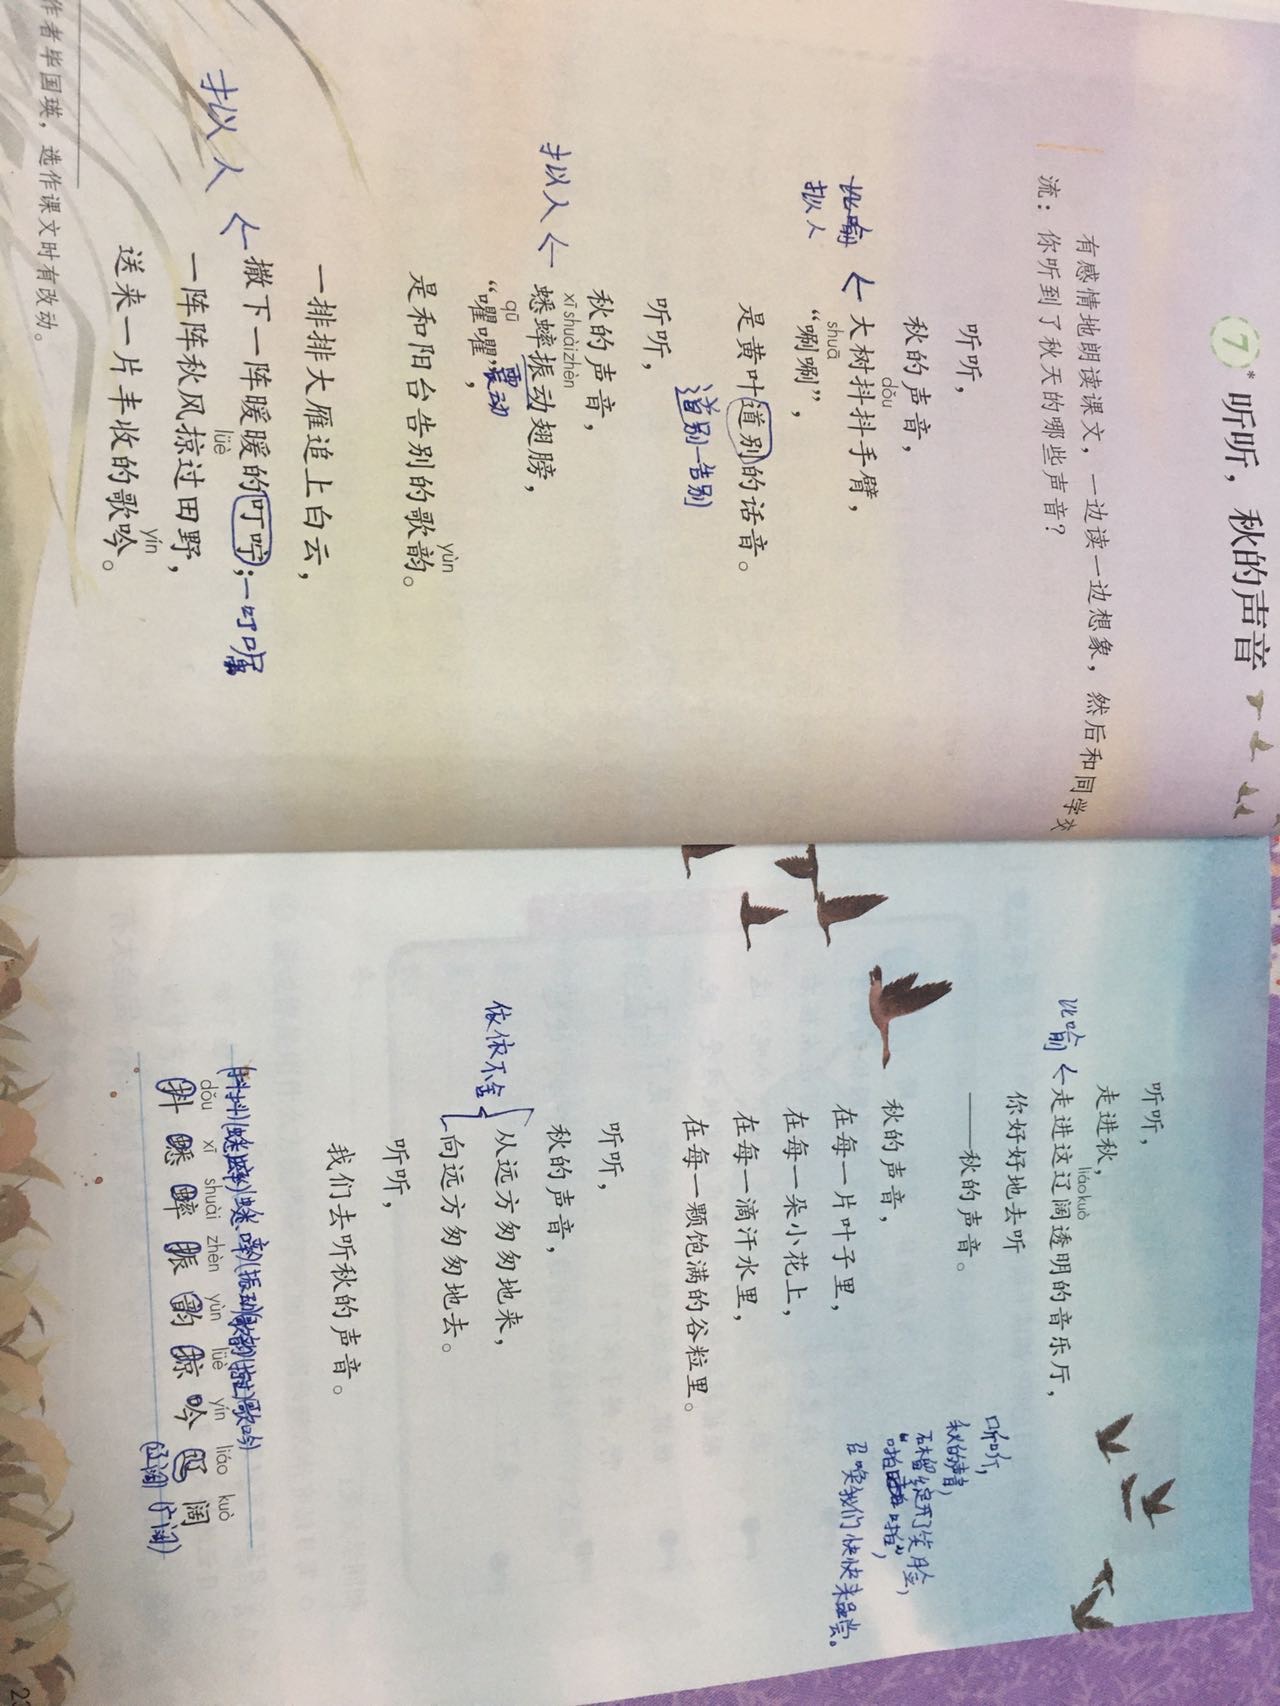 7* 听听，秋的声音
有感情地朗读课文，一边读一边想象，然后和同学交
流：你听到了秋天的哪些声音？
听听，
秋的声音，
dǒu
比喻 拟人 ← 大树抖抖手臂，
shuā
“唰唰”，
是黄叶道别的话音。
道别—告别
听听，
秋的声音，
xī shuài zhèn
拟人 ← 蟋蟀振动翅膀，
qū
“㘗㘗”，
震动
yùn
是和阳台告别的歌韵。
一排排大雁追上白云，
拟人 ← 撒下一阵暖暖的叮咛；—叮嘱
lüè
一阵阵秋风掠过田野，
yín
送来一片丰收的歌吟。
作者毕国瑛，选作课文时有改动。
听听，
走进秋，
liáo kuò
比喻 ← 走进这辽阔透明的音乐厅，
你好好地去听
——秋的声音。
秋的声音，
在每一片叶子里，
在每一朵小花上，
在每一滴汗水里，
在每一颗饱满的谷粒里。
听听，
秋的声音，
从远方匆匆地来，
向远方匆匆地去。
依依不舍
听听，
我们去听秋的声音。
听听，
秋的声音，
石榴绽开了笑脸，
召唤我们快快来品尝。
(抖抖)(蟋蟀)(蟋蟀)(振动)(歌韵)(掠过)(歌吟)
dǒu xī shuài zhèn yùn lüè yín liáo kuò
抖 蟋 蟀 振 韵 掠 吟 辽 阔
(辽阔)(广阔)